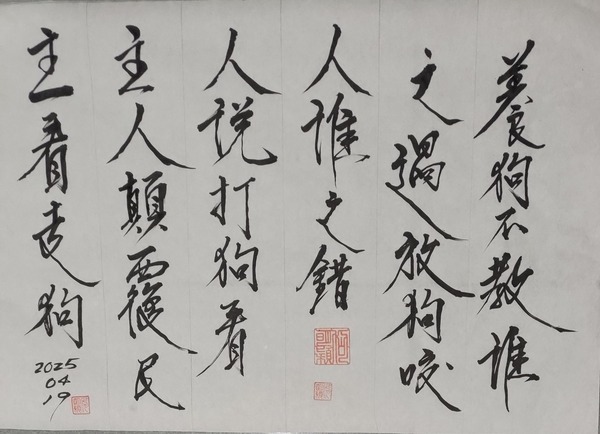 养狗不教谁
之过放狗咬
人谁之错
人说打狗看
主人颠覆民
主看走狗
2025
04
19